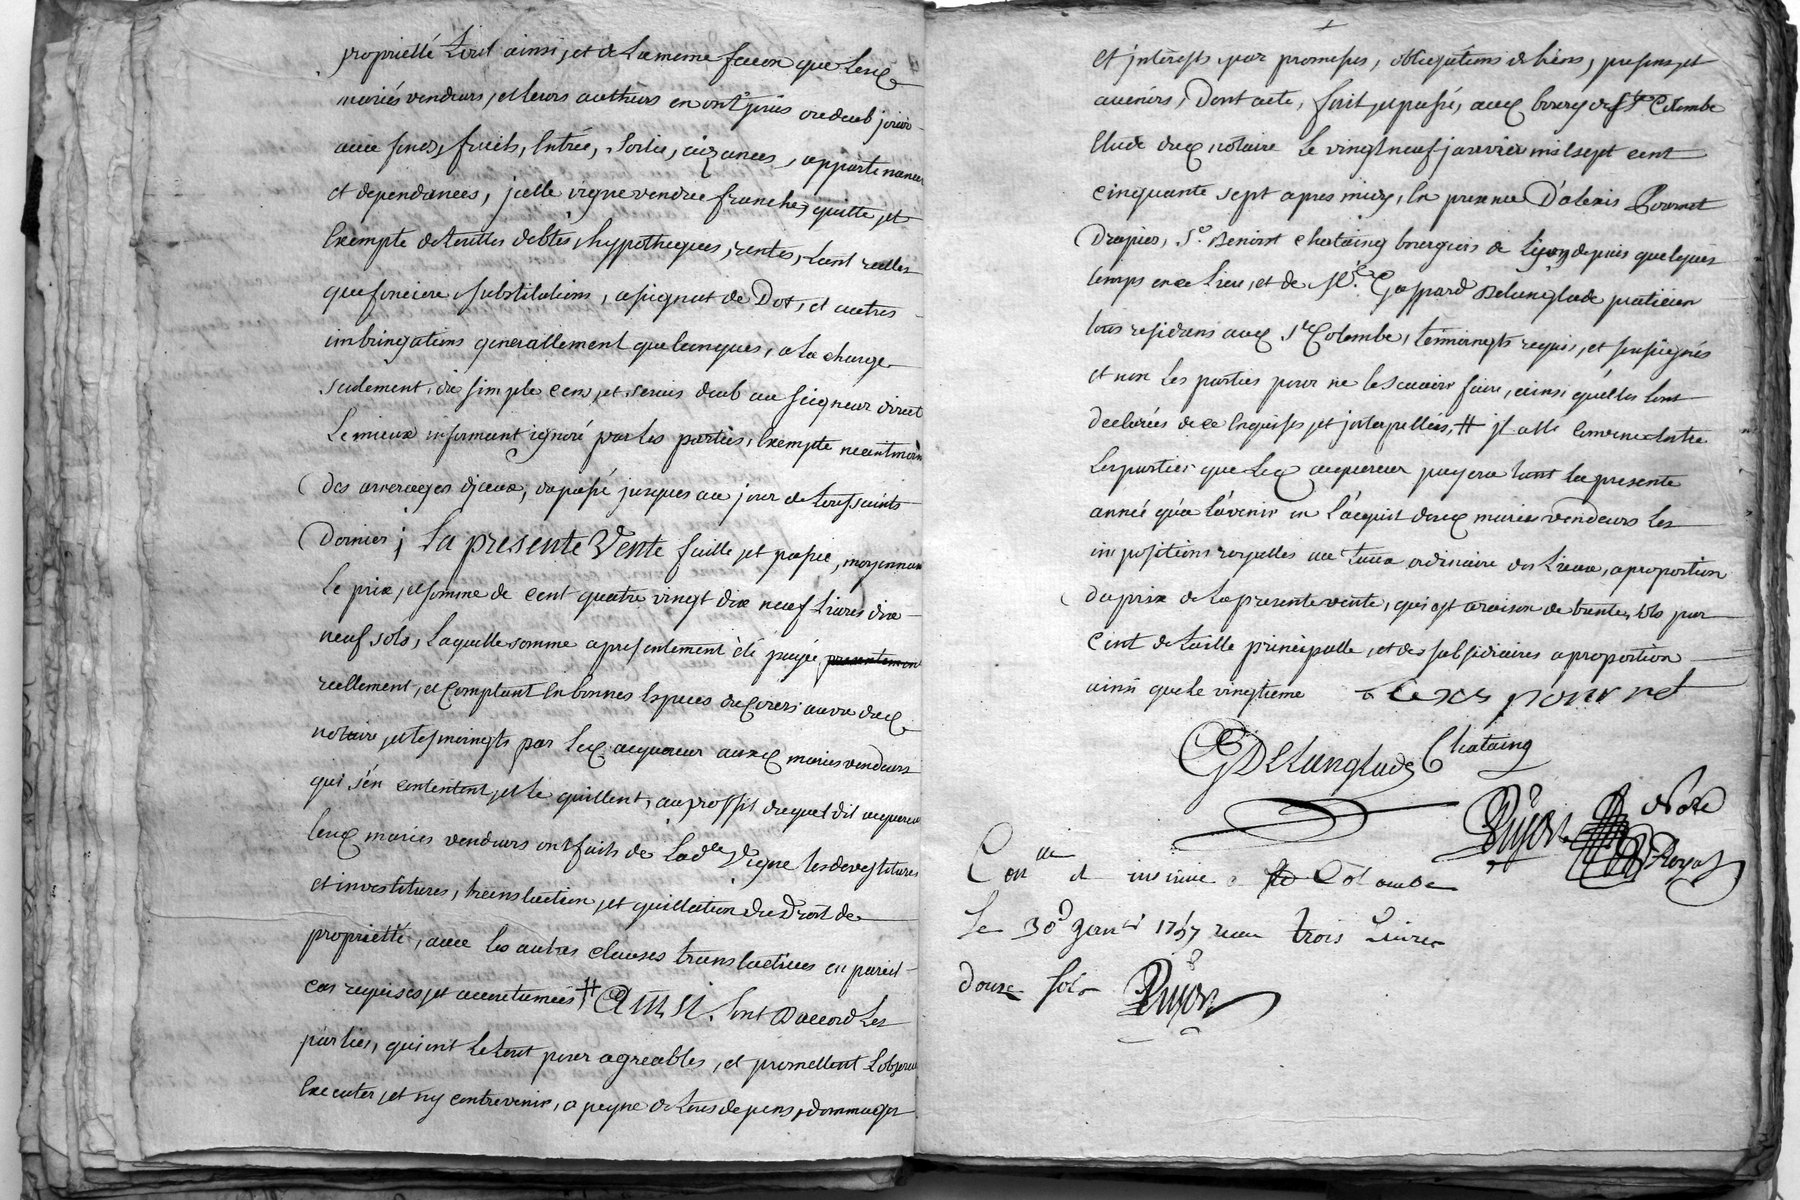 proprietté tout ainsi, et de la meme facon que lesd
mariés vendeurs, et leurs autheurs en ont joüis ou deub joüir
avec fonds, fruits, Entrée, sortie, aizances, appartenances
et dependances, jcelle vigne vendue franche, quitte, et
Exempte de touttes debtes, hyppotheques, rentes, tant reelles
que fonciere, substitutions, assignat de Dot, et autres
imbringations generallement quelconques, a la charge
seulement du simple cens, et servis deub au seigneur direct
Le mieux informant ignoré par les parties, Exempte neantmoins
des arrerages d'jceux, du passé jusques au jour de toussaints
Dernier; La presente Vente faitte, et passée, moyennant
Le prix, et somme de cent quatre vingt dix neuf Livres dix
neuf sols, Laquelle somme a presentement été payée presentement
reellement, et comptant en bonnes Especes du Cours au vu dud
notaire, et tesmoingts par led acquereur auxd mariés vendeurs
qui s'en contentent, et le quittent, au proffit duquel dit acquereur
lesd mariés vendeurs ont faits de lad.te Vigne les devestitures
et investitures, translation, et quittation du Droit de
proprietté, avec les autres clauses translatives en pareil
cas requises, et accoutumées # Ainsi, sont D'accord Les
parties, qui ont le tout pour agreables, et promettent L'observer
Executer, et n'y contrevenir, a peyne de tous depens, dommages
et jntérests, par promesses, obligations de biens, presens, et
avenirs, Dont acte, fait, et passé, aud bourg de Ste Colombe
Etude dud notaire Le vingt neuf janvier mil sept cent
cinquante sept apres midy, En presence D'alexis Pournet
Drapier, Sr. Benoist Chataing bourgeois de Lyon depuis quelques
temps en ce Lieu, et de Me. Gaspard Delanglade praticien
tous residans aud Ste Colombe, témoingts requis, et soussignés
et non Les parties pour ne le scavoir faire, ainsi qu'elles l'ont
declarées de ce Enquises, et jnterpellées, # jl a été Convenu Entre
Les parties que Led acquereur payera tant la presente
année qu'a l'avenir en l'acquit desd mariés vendeurs Les
impositions royalles au taux ordinaire des Lieux, a proportion
du prix de la presente vente, qui est a raison de trente sols par
Cent de taille principalle, et des subsidiaires a proportion
ainsi que le vingtieme alexis pournet
GDelanglade Chataing
Pujon Note
Royal
Conlle et insinué a Ste Colombe
Le 30e Janv 1757 reçu trois Livres
douze sols Pujon